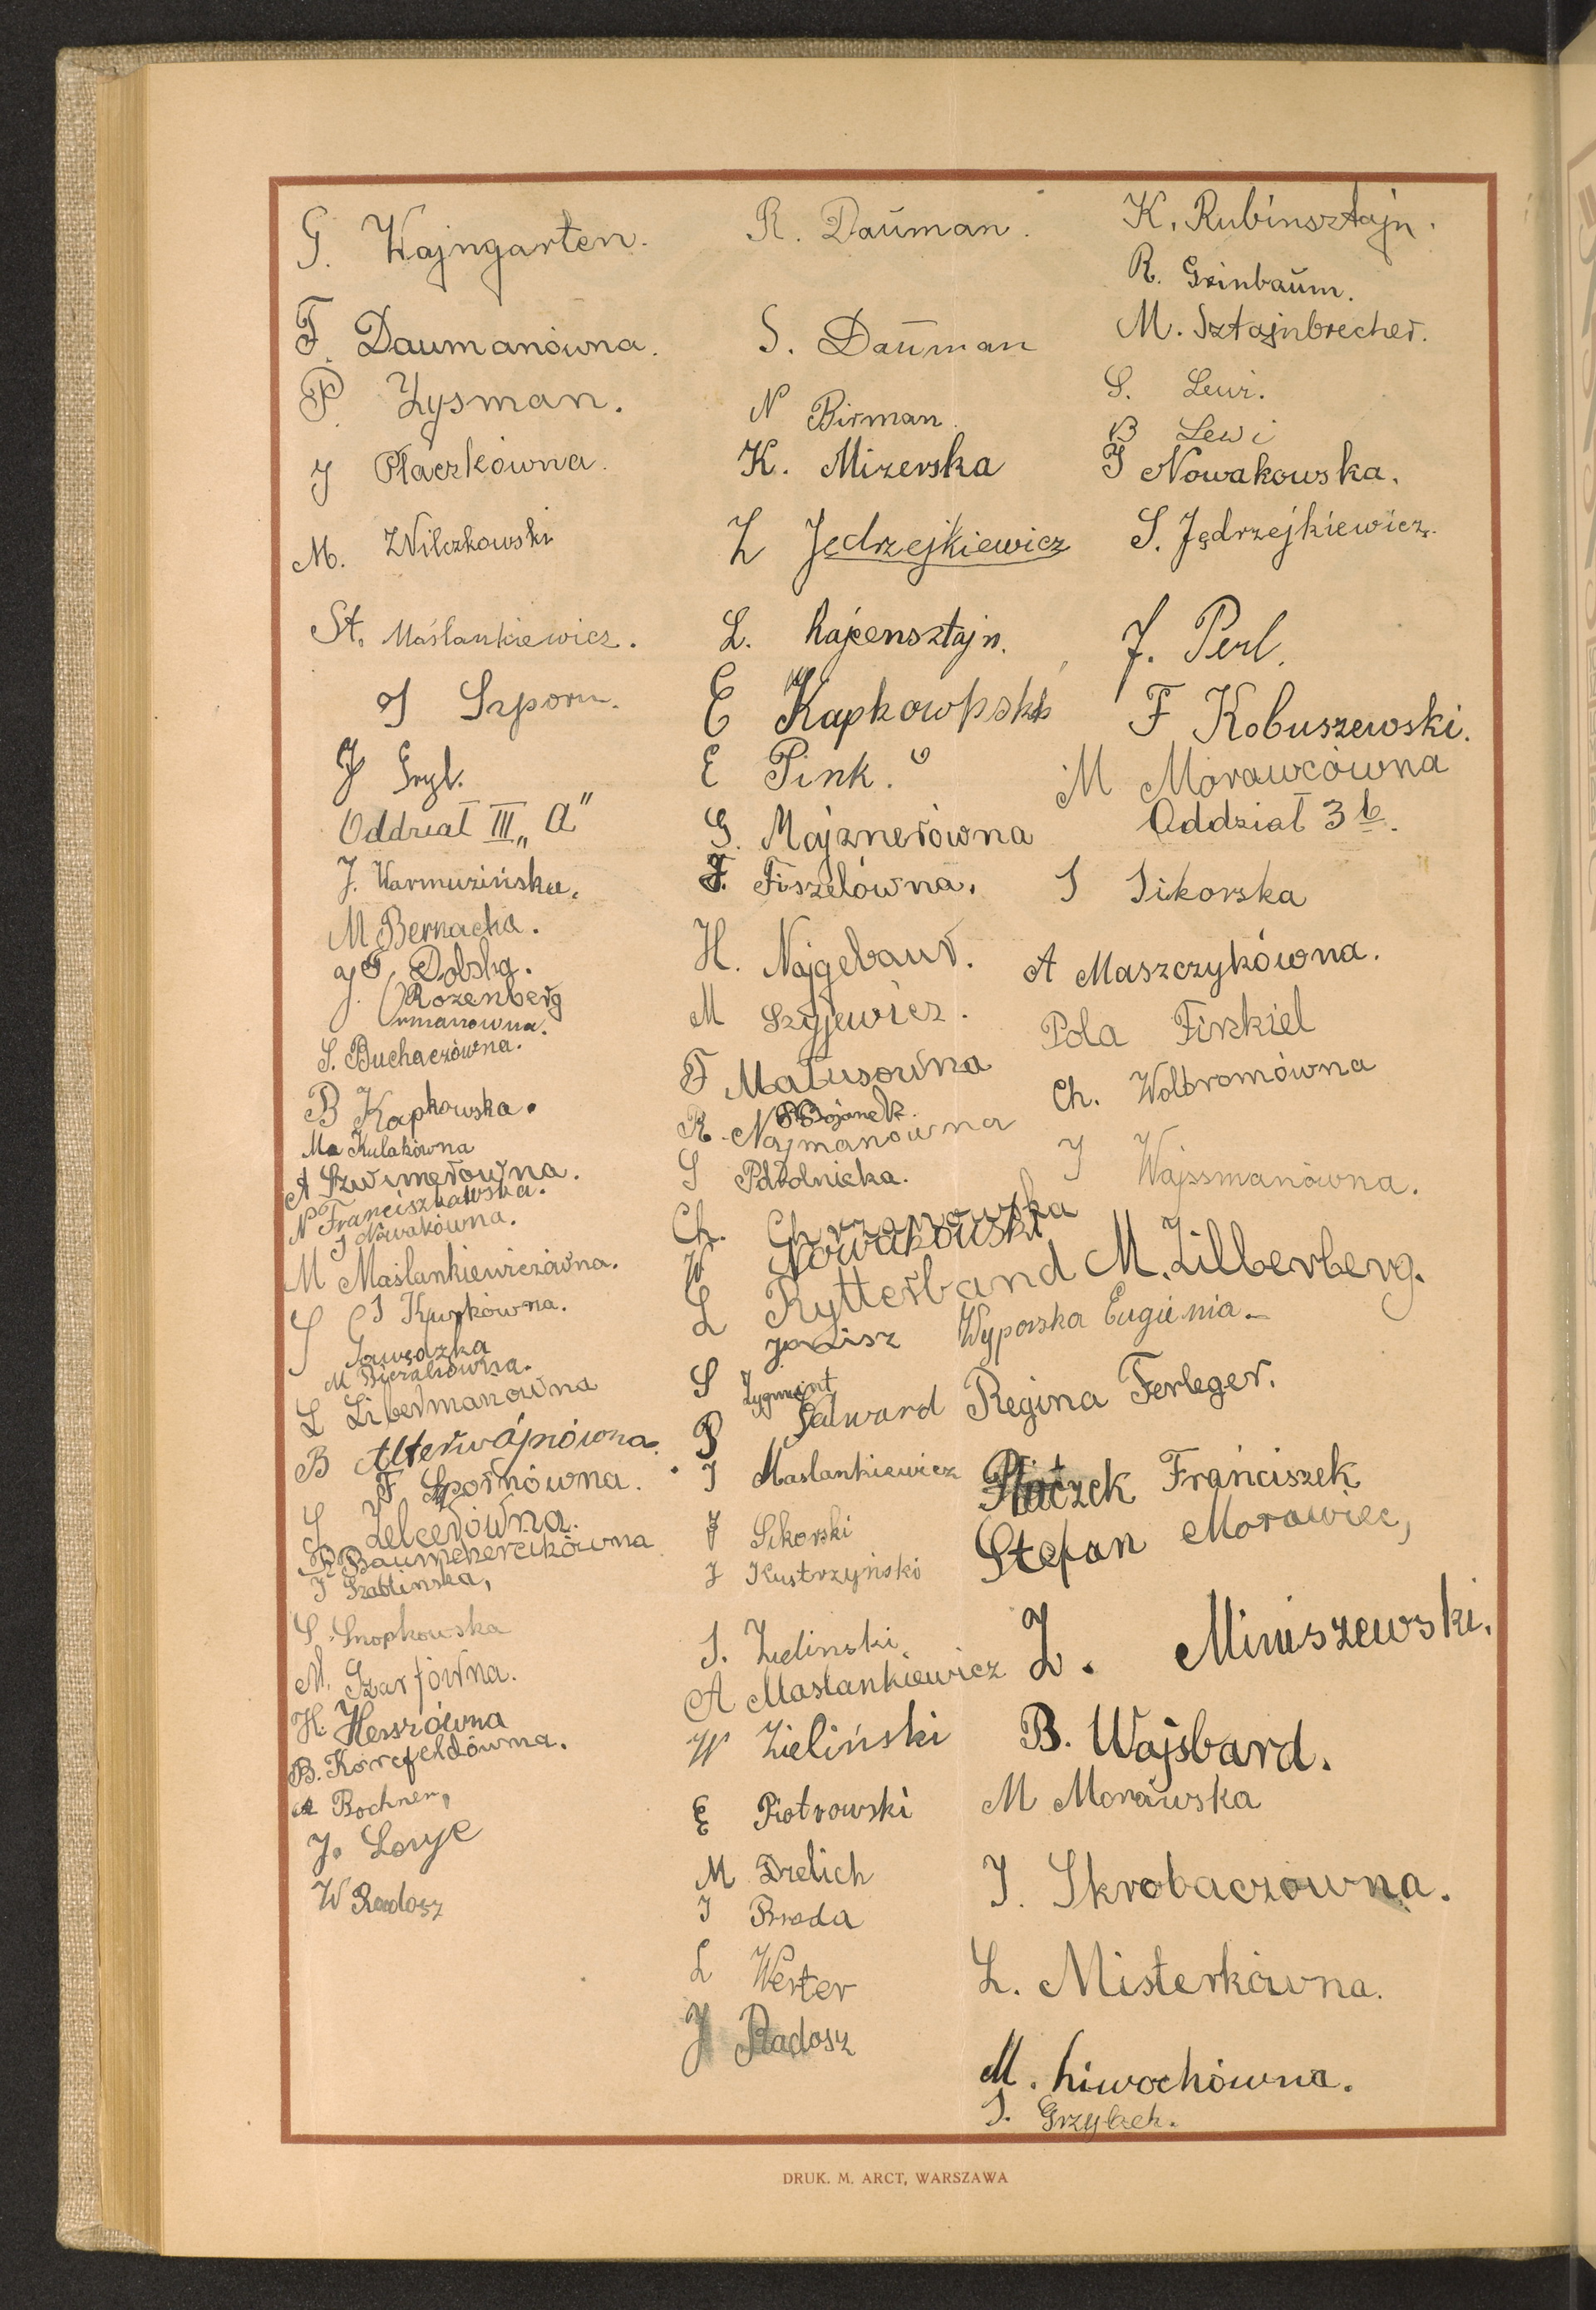 G. Wajngarten.
F. Daumanówna.
P. Zysman.
J Płaczkówna.
M. Wilczkowski
St. Maślankiewicz.
J Szporn.
J Gryl.
Oddział III „A”
J. Karmuzińska.
M Bernacka.
J. Dobska.
Rozenberg
J. Urmanowna.
S. Buchaczówna.
B Kapkowska.
Ma Kulakówna
A Szwimerowna.
N Franciszkowska.
J Nowakówna.
M Maślankiewiczówna.
S J Kurkówna.
Gawędzka
M Bierakowna.
L Libermanówna
B Alterwajnówna.
F Szpornówna.
S Zelcerówna.
R Baumchercikówna
J Szablinska,
S. Snopkowska
M. Szarfówna.
H. Herszówna
B. Korcfeldówna.
A Bochner,
J. Lorye
W Radosz
R. Dauman.
S. Dauman
N Birman.
K. Mizerska
Z Jędrzejkiewicz
L. Rajcensztajn.
E Kapkowski
E Pink.
G. Majznerówna
F. Fiszelówna.
H. Najgebaur.
M Szyjewicz.
F Matusowna
S Bojanek.
R. Najmanówna
S Podolnicka.
Ch. Chrzanowska
W Nowakowski
L Rytterband
J. Lisz
S Zygmunt
P Salward
J Maslankiewicz
J Sikorski
J Kustrzyński
S. Zielinski
A Maslankiewicz
W Zieliński
E Piotrowski
M Drelich
J Broda
L Werter
J Radosz
K. Rubinsztajn.
R. Grinbaum.
M. Sztajnbrecher.
S. Lewi.
B Lewi
J Nowakowska.
S. Jędrzejkiewicz.
J. Perl.
F Kobuszewski.
M Morawcówna
Oddział 3 b.
S Sikorska
A Maszczykówna.
Pola Finkiel
Ch. Wolbromówna
J Wajssmanówna.
M. Zilberberg.
Wyporska Eugienia.
Regina Ferleger.
Płaczek Franciszek
Stefan Morawiec,
Z. Miniszewski.
B. Wajsbard.
M Morawska
J. Skrobaczówna.
Z. Misterkówna.
M. Liwochówna.
S. Grzybek.
DRUK. M. ARCT, WARSZAWA